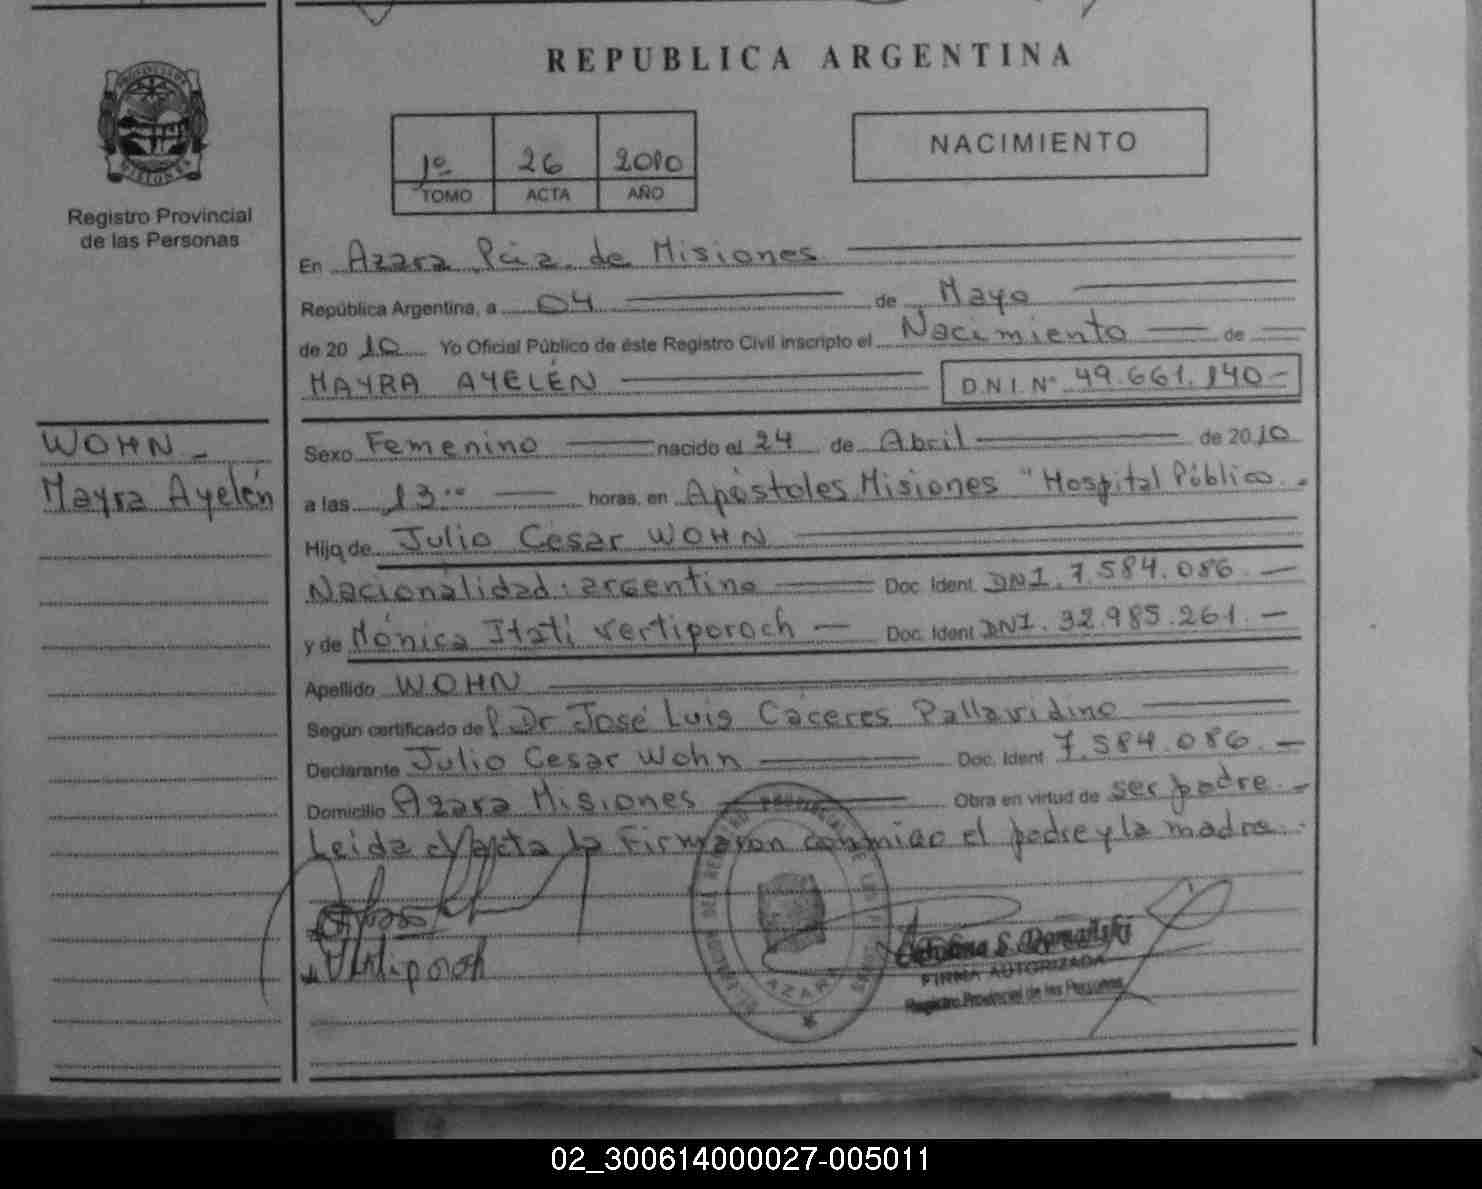 REPUBLICA ARGENTINA
PROVINCIA DE
MISIONES
Registro Provincial
de las Personas
1º 26 2010
TOMO ACTA AÑO
NACIMIENTO
En Azara Pcia. de Misiones
República Argentina, a 04 de Mayo
de 2010 Yo Oficial Público de éste Registro Civil inscripto el Nacimiento de
MAYRA AYELÉN D.N.I. Nº 49.661.140-
WOHN -
Mayra Ayelén
Sexo Femenino nacido el 24 de Abril de 2010
a las 13:00 horas, en Apóstoles Misiones "Hospital Público.
Hija de Julio Cesar WOHN
Nacionalidad: argentino Doc. Ident. DNI. 7.584.086.-
y de Mónica Itatí Vertiporoch - Doc. Ident DNI. 32.985.261.-
Apellido WOHN
Según certificado del Dr José Luis Caceres Pallavidino
Declarante Julio Cesar Wohn Doc. Ident 7.584.086.-
Domicilio Azara Misiones Obra en virtud de ser padre.-
Leida el Acta la Firmaron conmigo el padre y la madre.
Vertiporoch
AZARA
S. Domañski
FIRMA AUTORIZADA
Registro Provincial de las Personas
02_300614000027-005011